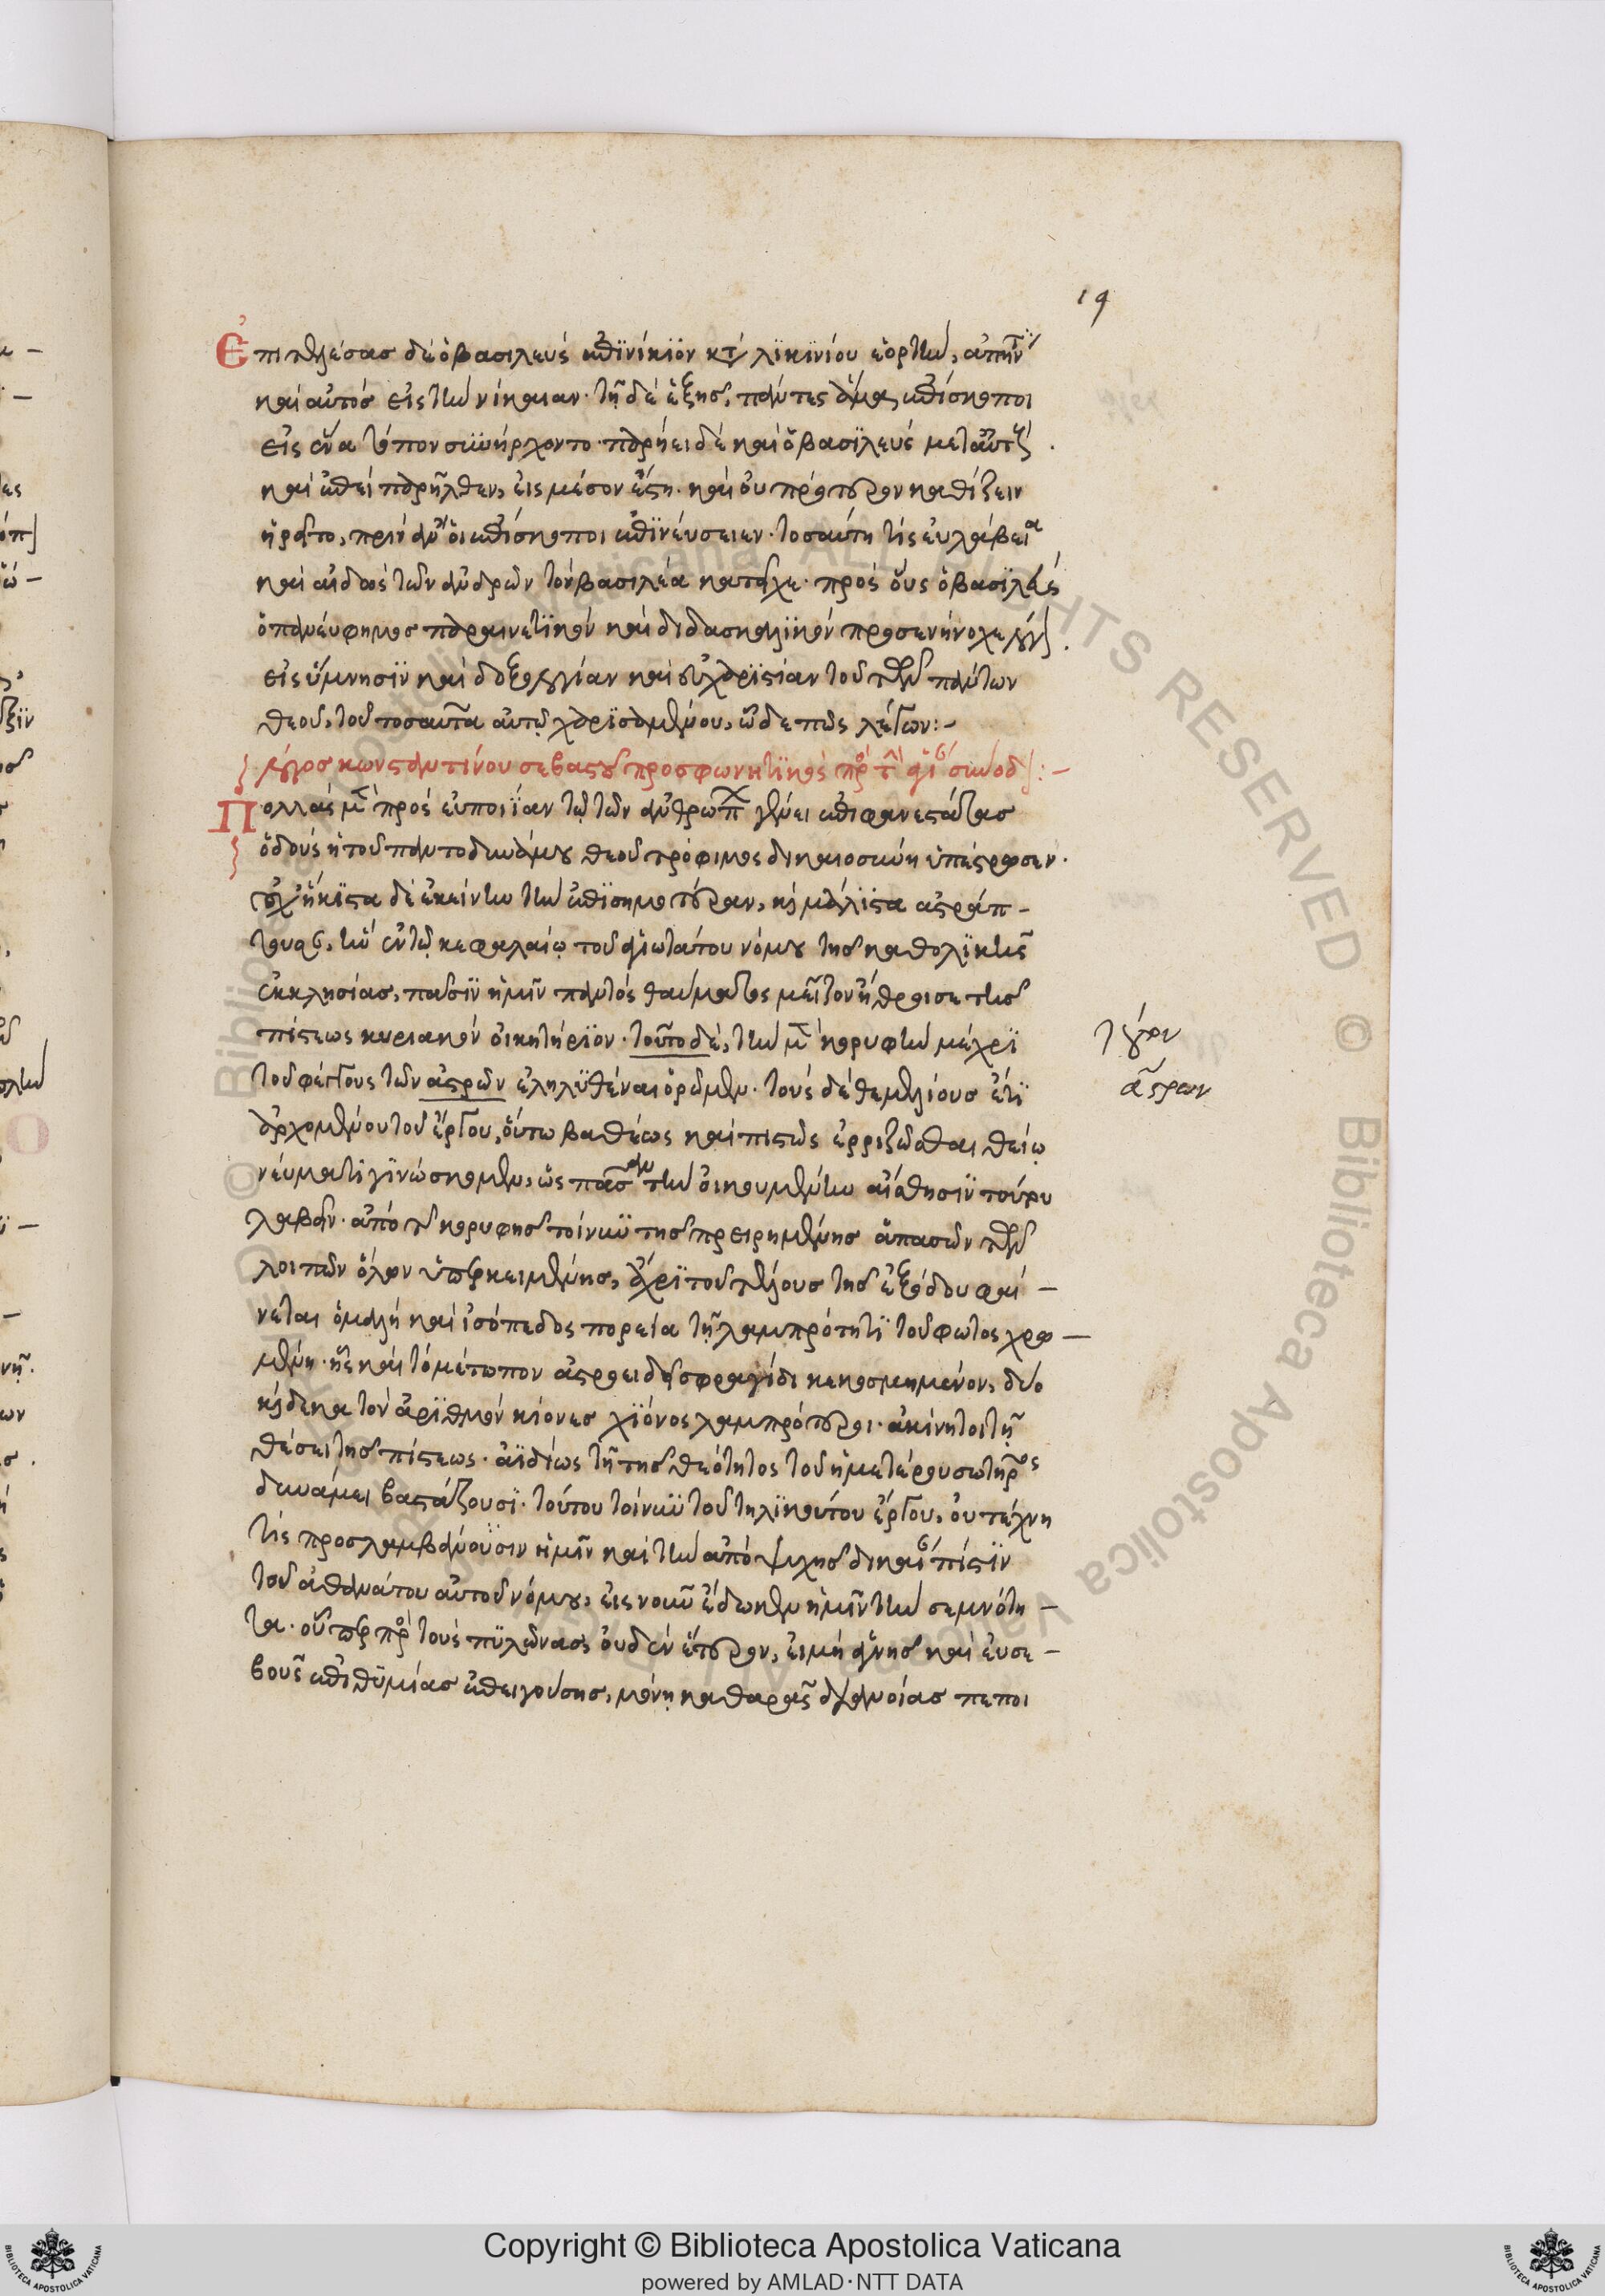 19
Ἐπιτελέσας δὲ ὁ βασιλεὺς ἐπϊνίκϊον κτ λϊκϊνίου ἑορτὴν, ἀπήντ
καὶ αὐτὸς εἰς τὴν νίκαιαν· τῇ δὲ ἑξῆς, πάντες ἅμα, ἐπίσκοποι
εἰς ἕνα τόπον συνήρχοντο· παρήει δὲ καὶ ὁ βασϊλεὺς μετ αὐτούς.
καὶ ἐπεὶ παρῆλθεν, εἰς μέσον ἔστη· καὶ οὐ πρότερον καθίζειν
ᾑρεῖτο, πρὶν ἂν οἱ ἐπίσκοποι ἐπϊνεύσειεν· τοσαύτη τίς εὐλάβεια
καὶ αἰδὼς τῶν ἀνδρῶν τὸν βασιλέα κατεῖχε· πρὸς οὓς ὁ βασϊλεὺς
ὁ πανεύφημος παραινετϊκὸν καὶ διδασκαλϊκὸν προσενήνοχε λόγον.
εἰς ὕμνησϊν καὶ δοξολογίαν καὶ εὐχαρϊστίαν τοῦ τῶν πάντων
θεοῦ, τοῦ τοσαῦτα αὐτῷ χαρϊσαμένου, ὧδε πως λέγων:-
λόγος κωνσταντίνου σεβαστοῦ προσφωνητϊκὸς πρὸς τὴν ἁγίαν σύνοδον:-
Πολλὰς μὲν πρὸς εὐποιΐαν τῷ τῶν ἀνθρώπων γένει ἐπιφανεστάτας
ὁδοὺς ἡ τοῦ παντοδυνάμου θεοῦ τρόφιμος δικαιοσύνη ὑπέστρωσεν.
οὐχ ἥκϊστα δὲ ἐκείνην τὴν ἐπϊσημοτέραν, καὶ μάλϊστα ἀστράπ-
τουσαν, τὴν ἐν τῷ κεφαλαίῳ τοῦ ἁγιωτάτου νόμου τῆς καθολϊκῆς
ἐκκλησίας, πᾶσϊν ἡμῖν παντὸς θαύματος μεῖζον ἤθροισε τῆς
πίστεως κυριακὸν οἰκητήρϊον· τοῦτο δὲ, τὴν μὲν κορυφὴν μέχρϊ
τοῦ φέγγους τῶν ἀστρων ἐληλϋθέναι ὁρῶμεν· τοὺς δὲ θεμελίους ἔτϊ
ἀρχομένου τοῦ ἔργου, οὕτω βαθέως καὶ πιστῶς ἐρριζῶσθαι θείῳ
νεύματι γϊνώσκομεν, ὡς πᾶσαν τὴν οἰκουμένην αἴσθησϊν τούτου
λαβεῖν· ἀπὸ τῆς κορυφῆς τοίνυν τῆς προειρημένης ἁπασῶν τῶν
λοιπῶν ὅλον ὑπερκειμένης, ἄχρϊ τοῦ τέλους τῆς ἐξόδου φαί-
νεται ὁμαλὴ καὶ ἰσόπεδος πορεία τῇ λαμπρότητϊ τοῦ φωτὸς χρω-
μένη· ἧς καὶ τὸ μέτωπον ἀστροειδεῖ σφραγίδι κεκοσμημένον, δύο
καὶ δέκα τὸν ἀρϊθμὸν κίονες χϊόνος λαμπρότεροι· ἀκίνητοι τῇ
θέσει τῆς πίστεως· ἀϊδίως τῇ τῆς θεότητος τοῦ ἡμετέρου σωτῆρος
δυνάμει βαστάζουσϊ· τούτου τοίνυν τοῦ τηλϊκούτου ἔργου, οὐ τέχνη
τίς προσλαμβάνουσιν ἡμῖν καὶ τὴν ἀπὸ ψυχῆς δικαίαν πίστϊν
τοῦ ἀθανάτου αὐτοῦ νόμου, εἰς νοῦν ἔδωκεν ἡμῖν τὴν σεμνότη-
τα· οὗπερ πρὸς τοὺς πϋλῶνας, οὐδὲν ἕτερον, εἰ μὴ ἁγνῆς καὶ εὐσε-
βοῦς ἐπϊθϋμίας ἐπειγούσης, μόνη καθαρᾶς διανοίας πεποι
γρ
ἄστρων
Copyright © Biblioteca Apostolica Vaticana
powered by AMLAD·NTT DATA